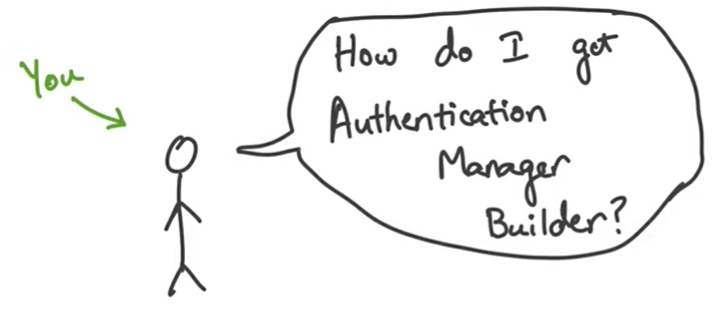 You
How do I get
Authentication
Manager
Builder?